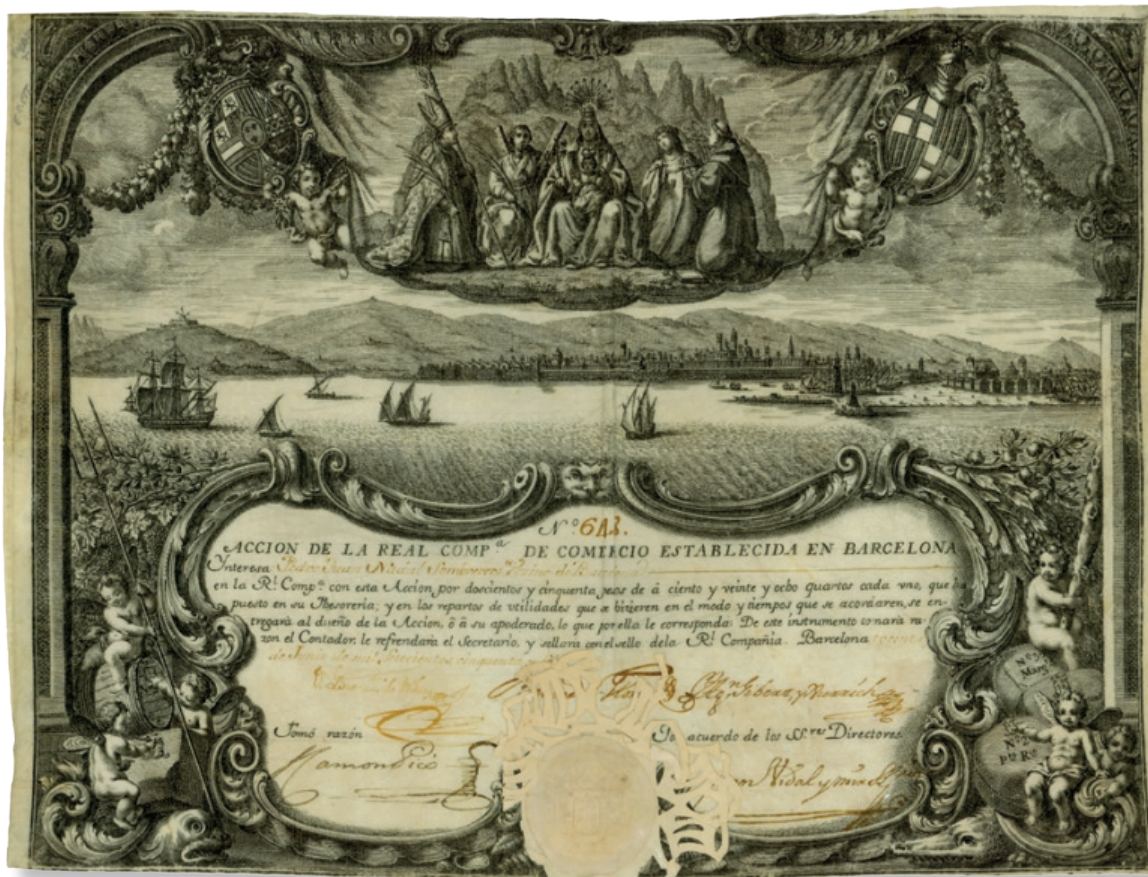 N.º 641.
ACCION DE LA REAL COMPª DE COMERCIO ESTABLECIDA EN BARCELONA
Ynteresa Pedro Juan Nadal
en la Rˡ Compª con esta Accion por doscientos y cinquenta pesos de á ciento y veinte y ocho quartos cada vno, que ha
puesto en su Thesoreria; y en los repartos de vtilidades que se hizieren en el modo y tiempos que se acordaren, se en-
tregará al dueño de la Accion, ó á su apoderado, lo que por ella le corresponda: De este instrumento tomará ra-
zon el Contador, le refrendara el Secretario, y sellara con el sello de la Rˡ Compañia. Barcelona
de Junio de mil setecientos cinquenta
Tomó razón
Por acuerdo de los SSʳᵉˢ Directores
Ramon Picó
Vidal y